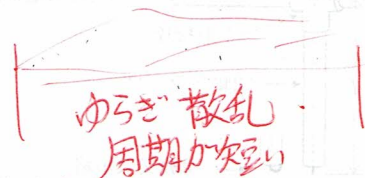 ゆらぎ 散乱
周期が短い